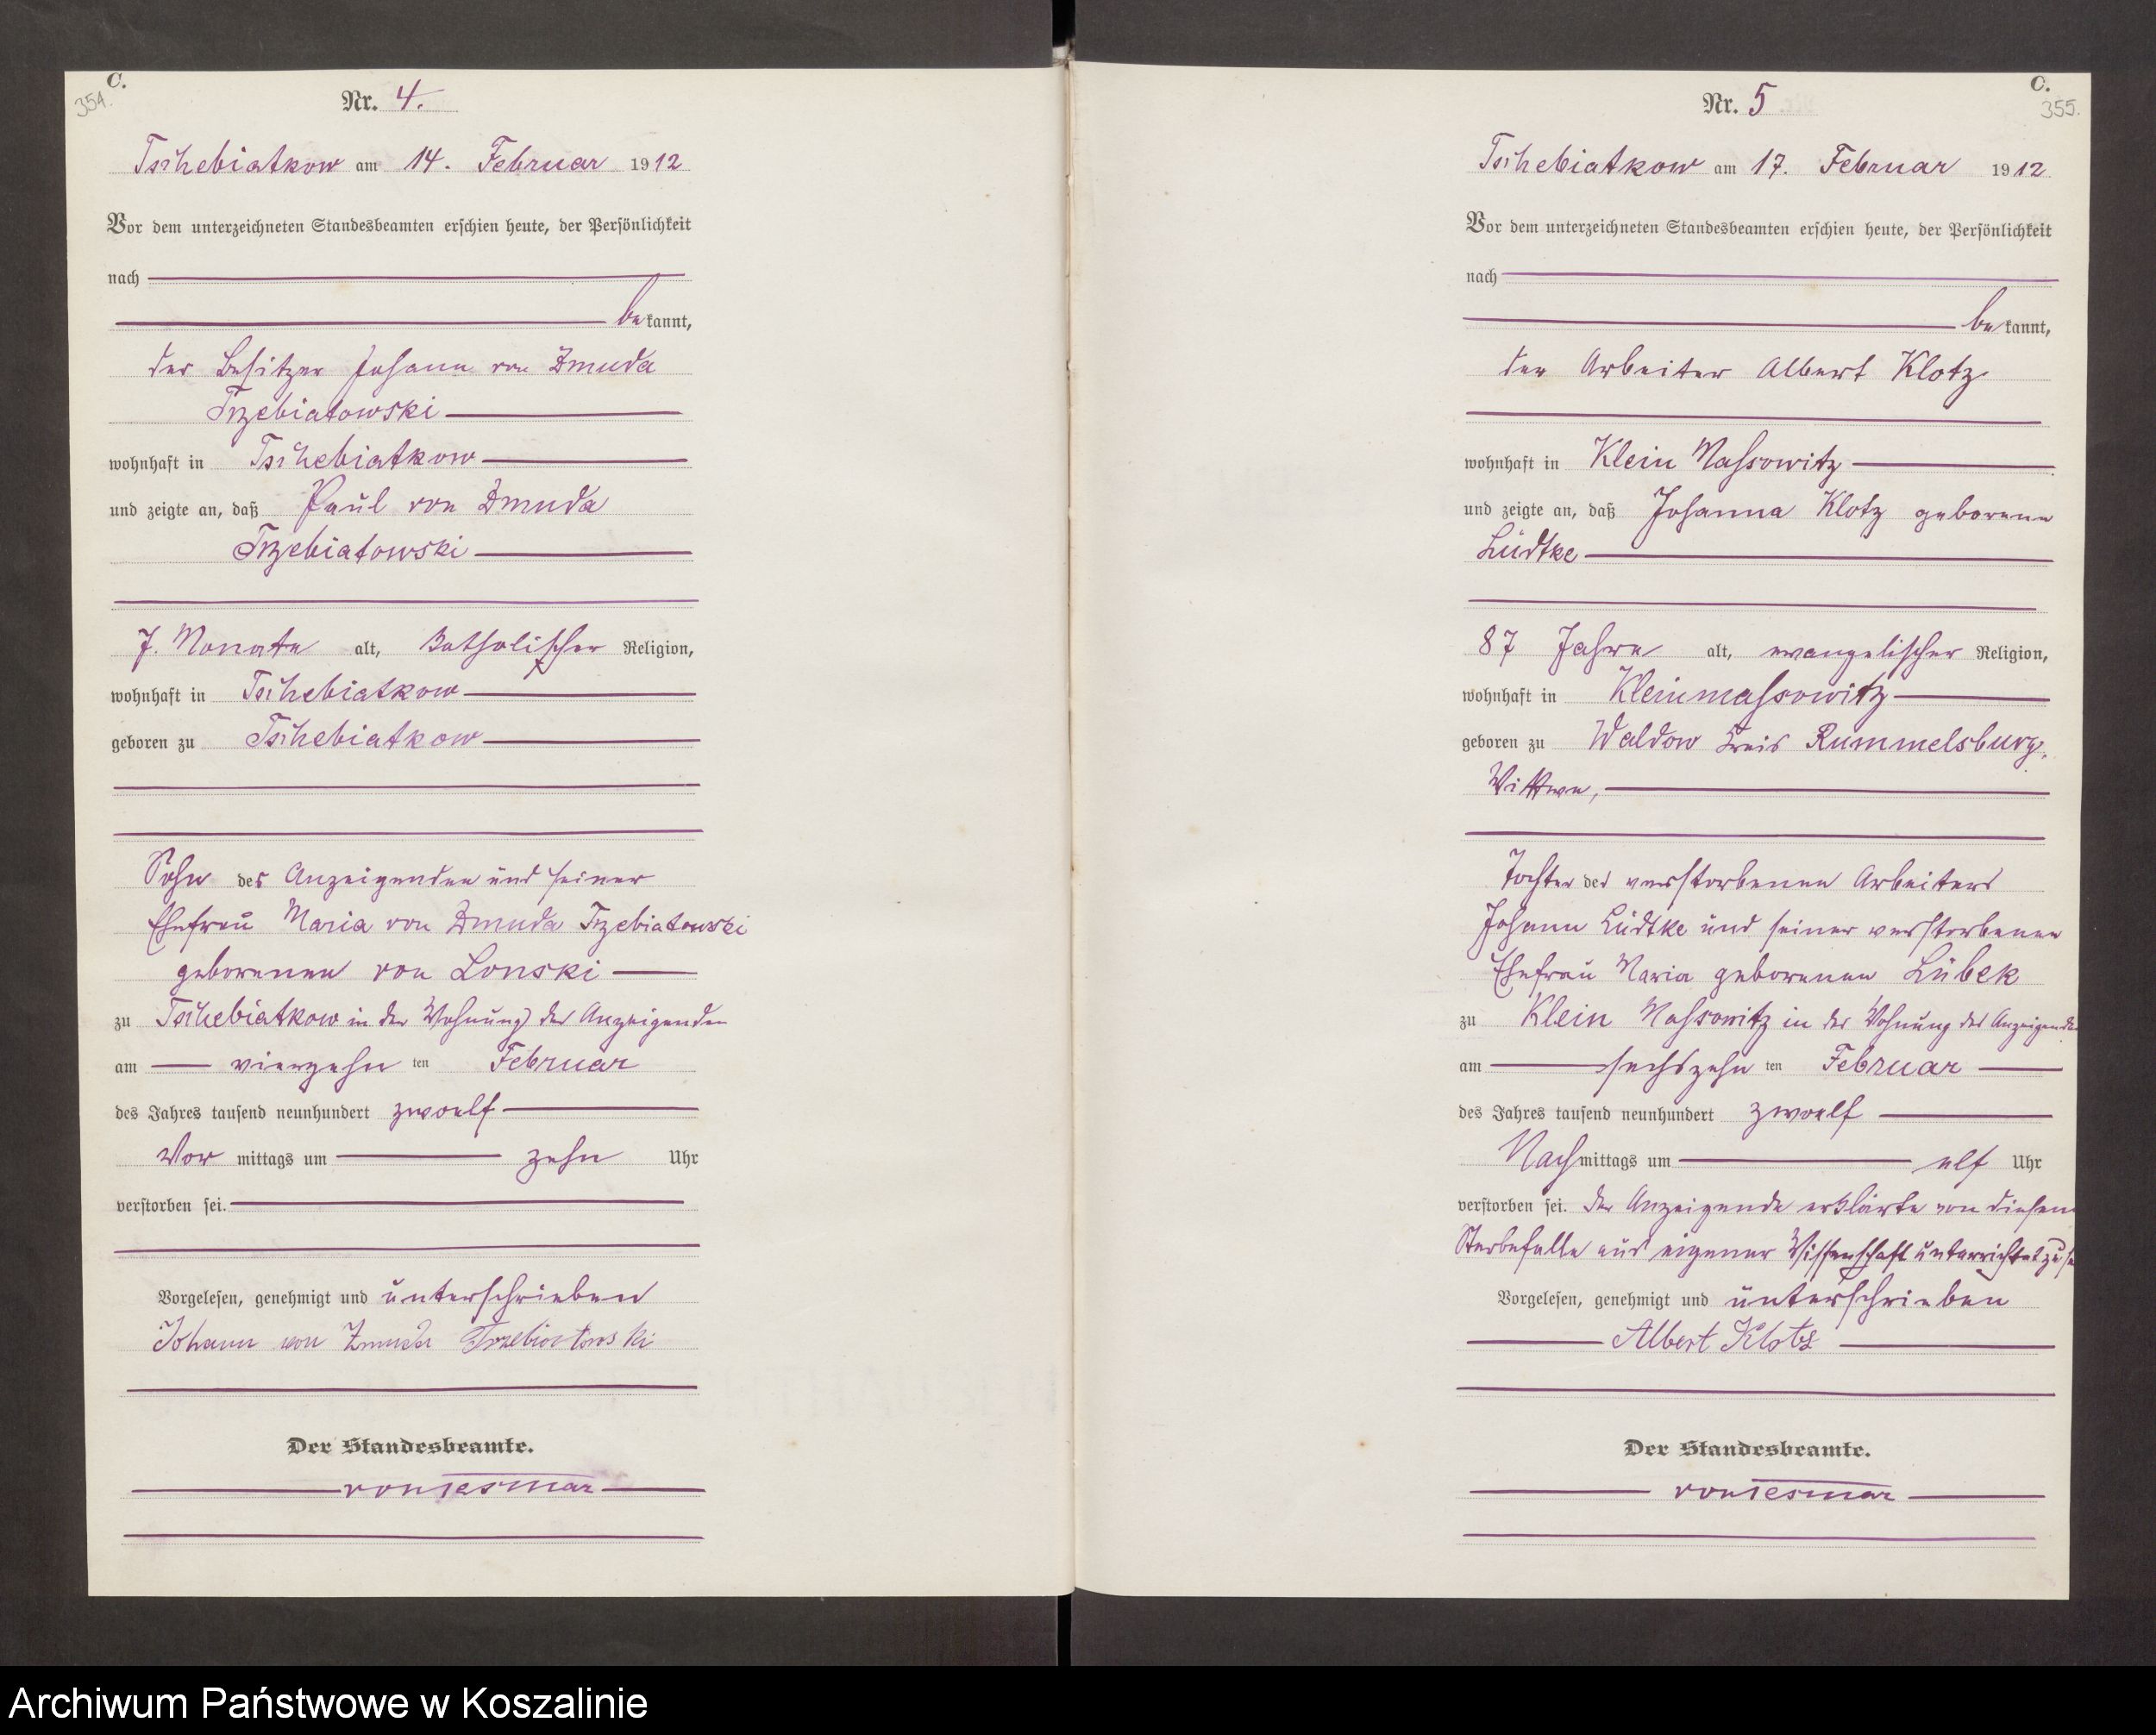 C.
354.
Nr. 4.
Tschebiatkow am 14. Februar 1912
Vor dem unterzeichneten Standesbeamten erschien heute, der Persönlichkeit
nach
bekannt,
der Besitzer Johann von Zmuda
Trzebiatowski
wohnhaft in Tschebiatkow
und zeigte an, daß Paul von Zmuda
Trzebiatowski
7. Monate alt, katholischer Religion,
wohnhaft in Tschebiatkow
geboren zu Tschebiatkow
Sohn des Anzeigenden und seiner
Ehefrau Maria von Zmuda Trzebiatowski
geborenen von Lonski
zu Tschebiatkow in der Wohnung des Anzeigenden
am vierzehn ten Februar
des Jahres tausend neunhundert zwoelf
Vor mittags um zehn Uhr
verstorben sei.
Vorgelesen, genehmigt und unterschrieben
Johann von Zmuda Trzebiatowski
Der Standesbeamte.
von Tesmar
C.
355.
Nr. 5
Tschebiatkow am 17. Februar 1912
Vor dem unterzeichneten Standesbeamten erschien heute, der Persönlichkeit
nach
bekannt,
der Arbeiter Albert Klotz
wohnhaft in Klein Massowitz
und zeigte an, daß Johanna Klotz geborene
Lüdtke
87 Jahre alt, evangelischer Religion,
wohnhaft in Kleinmassowitz
geboren zu Waldow Kreis Rummelsburg,
Wittwe,
Tochter des verstorbenen Arbeiters
Johann Lüdtke und seiner verstorbenen
Ehefrau Maria geborenen Lübek
zu Klein Massowitz in der Wohnung des Anzeigenden
am sechszehn ten Februar
des Jahres tausend neunhundert zwoelf
Nachmittags um elf Uhr
verstorben sei. Der Anzeigende erklärte von diesem
Sterbefalle aus eigener Wissenschaft unterrichtet zu
Vorgelesen, genehmigt und unterschrieben
Albert Klotz
Der Standesbeamte.
von Tesmar
Archiwum Państwowe w Koszalinie